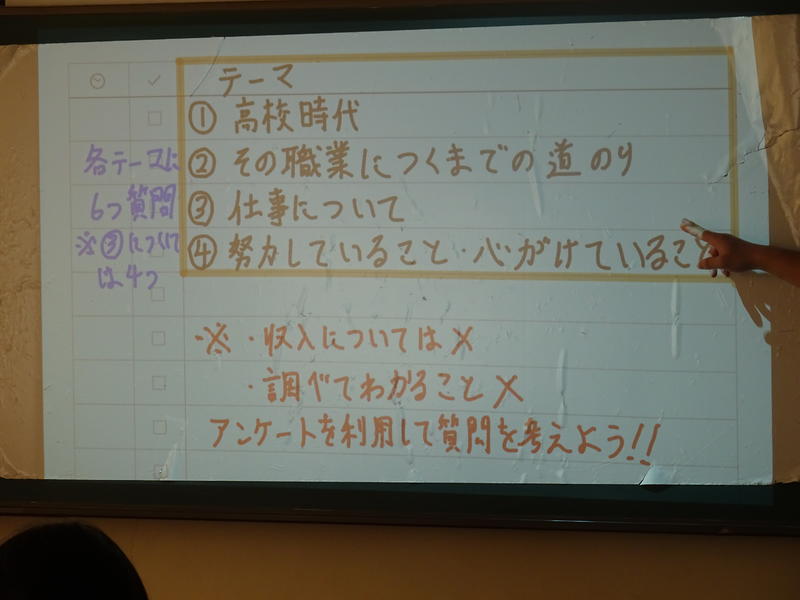 テーマ
① 高校時代
② その職業につくまでの道のり
③ 仕事について
④ 努力していること・心がけているこ
各テーマに
6つ質問
※③について
は4つ
※・収入については×
・調べてわかること×
アンケートを利用して質問を考えよう!!